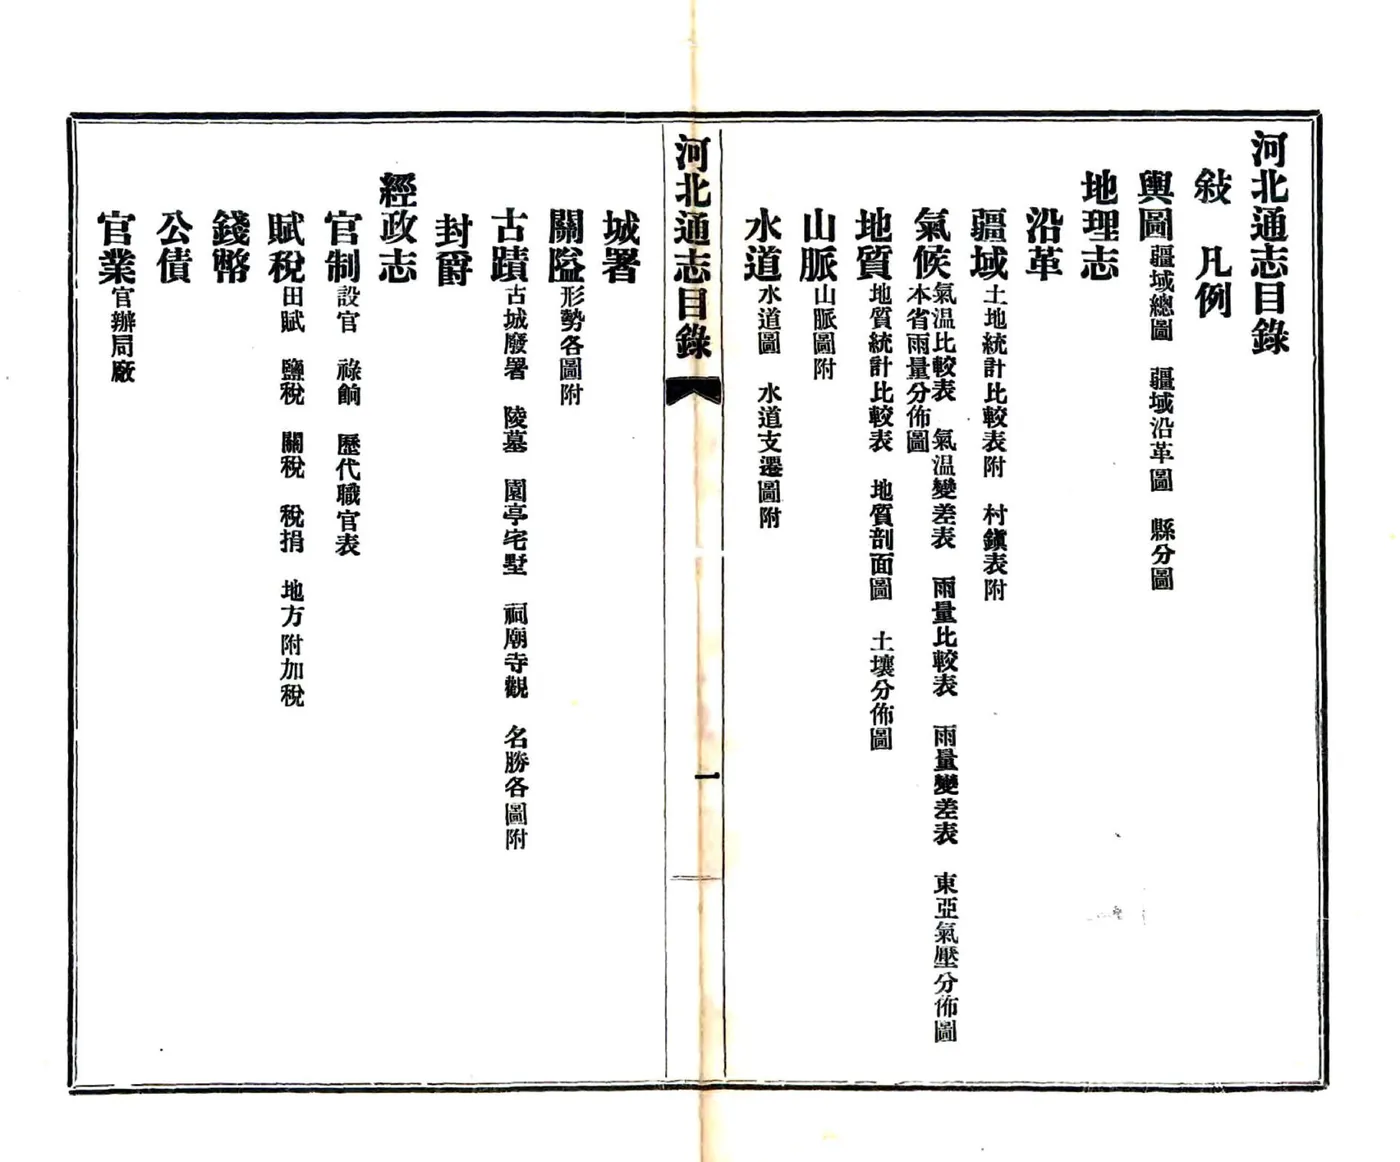 河北通志目錄
敍　凡例
輿圖 疆域總圖　疆域沿革圖　縣分圖
地理志
沿革
疆域 土地統計比較表附　村鎭表附
氣候 氣温比較表　氣温變差表　雨量比較表　雨量變差表　東亞氣壓分佈圖
本省雨量分佈圖
地質 地質統計比較表　地質剖面圖　土壤分佈圖
山脈 山脈圖附
水道 水道圖　水道支遷圖附
河北通志目錄
一
城署
關隘 形勢各圖附
古蹟 古城廢署　陵墓　園亭宅墅　祠廟寺觀　名勝各圖附
封爵
經政志
官制 設官　祿餉　歷代職官表
賦稅 田賦　鹽稅　關稅　稅捐　地方附加稅
錢幣
公債
官業 官辦局廠